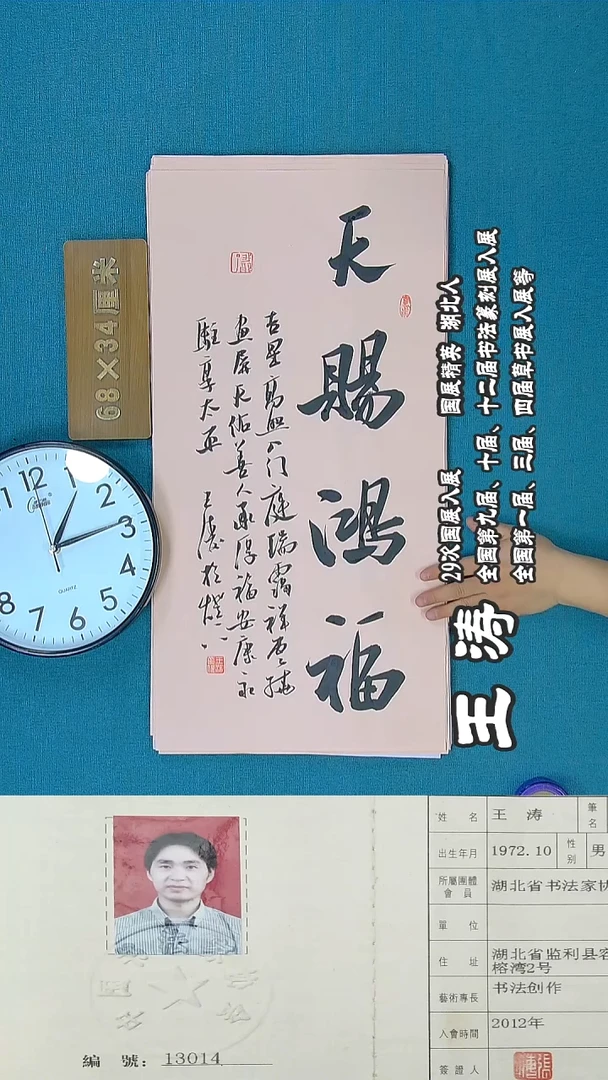 天赐鸿福
吉星高照门庭瑞霭祥光绕
画屏天佑善人承厚福安康永
驻享太平 王涛
68×34厘米
12
1
2
3
4
5
6
7
8
QUARTZ
29次国展入展 国展精英 湖北人
全国第九届、十届、十二届书法篆刻展入展
全国第一届、三届、四届草书展入展等
王涛
姓 名 王 涛 筆名
出生年月 1972.10 性别 男
所屬團體會員 湖北省书法家协
單 位
住 址 湖北省监利县容
榕湾2号
藝術專長 书法创作
入會時間 2012年
簽證人
編 號：13014